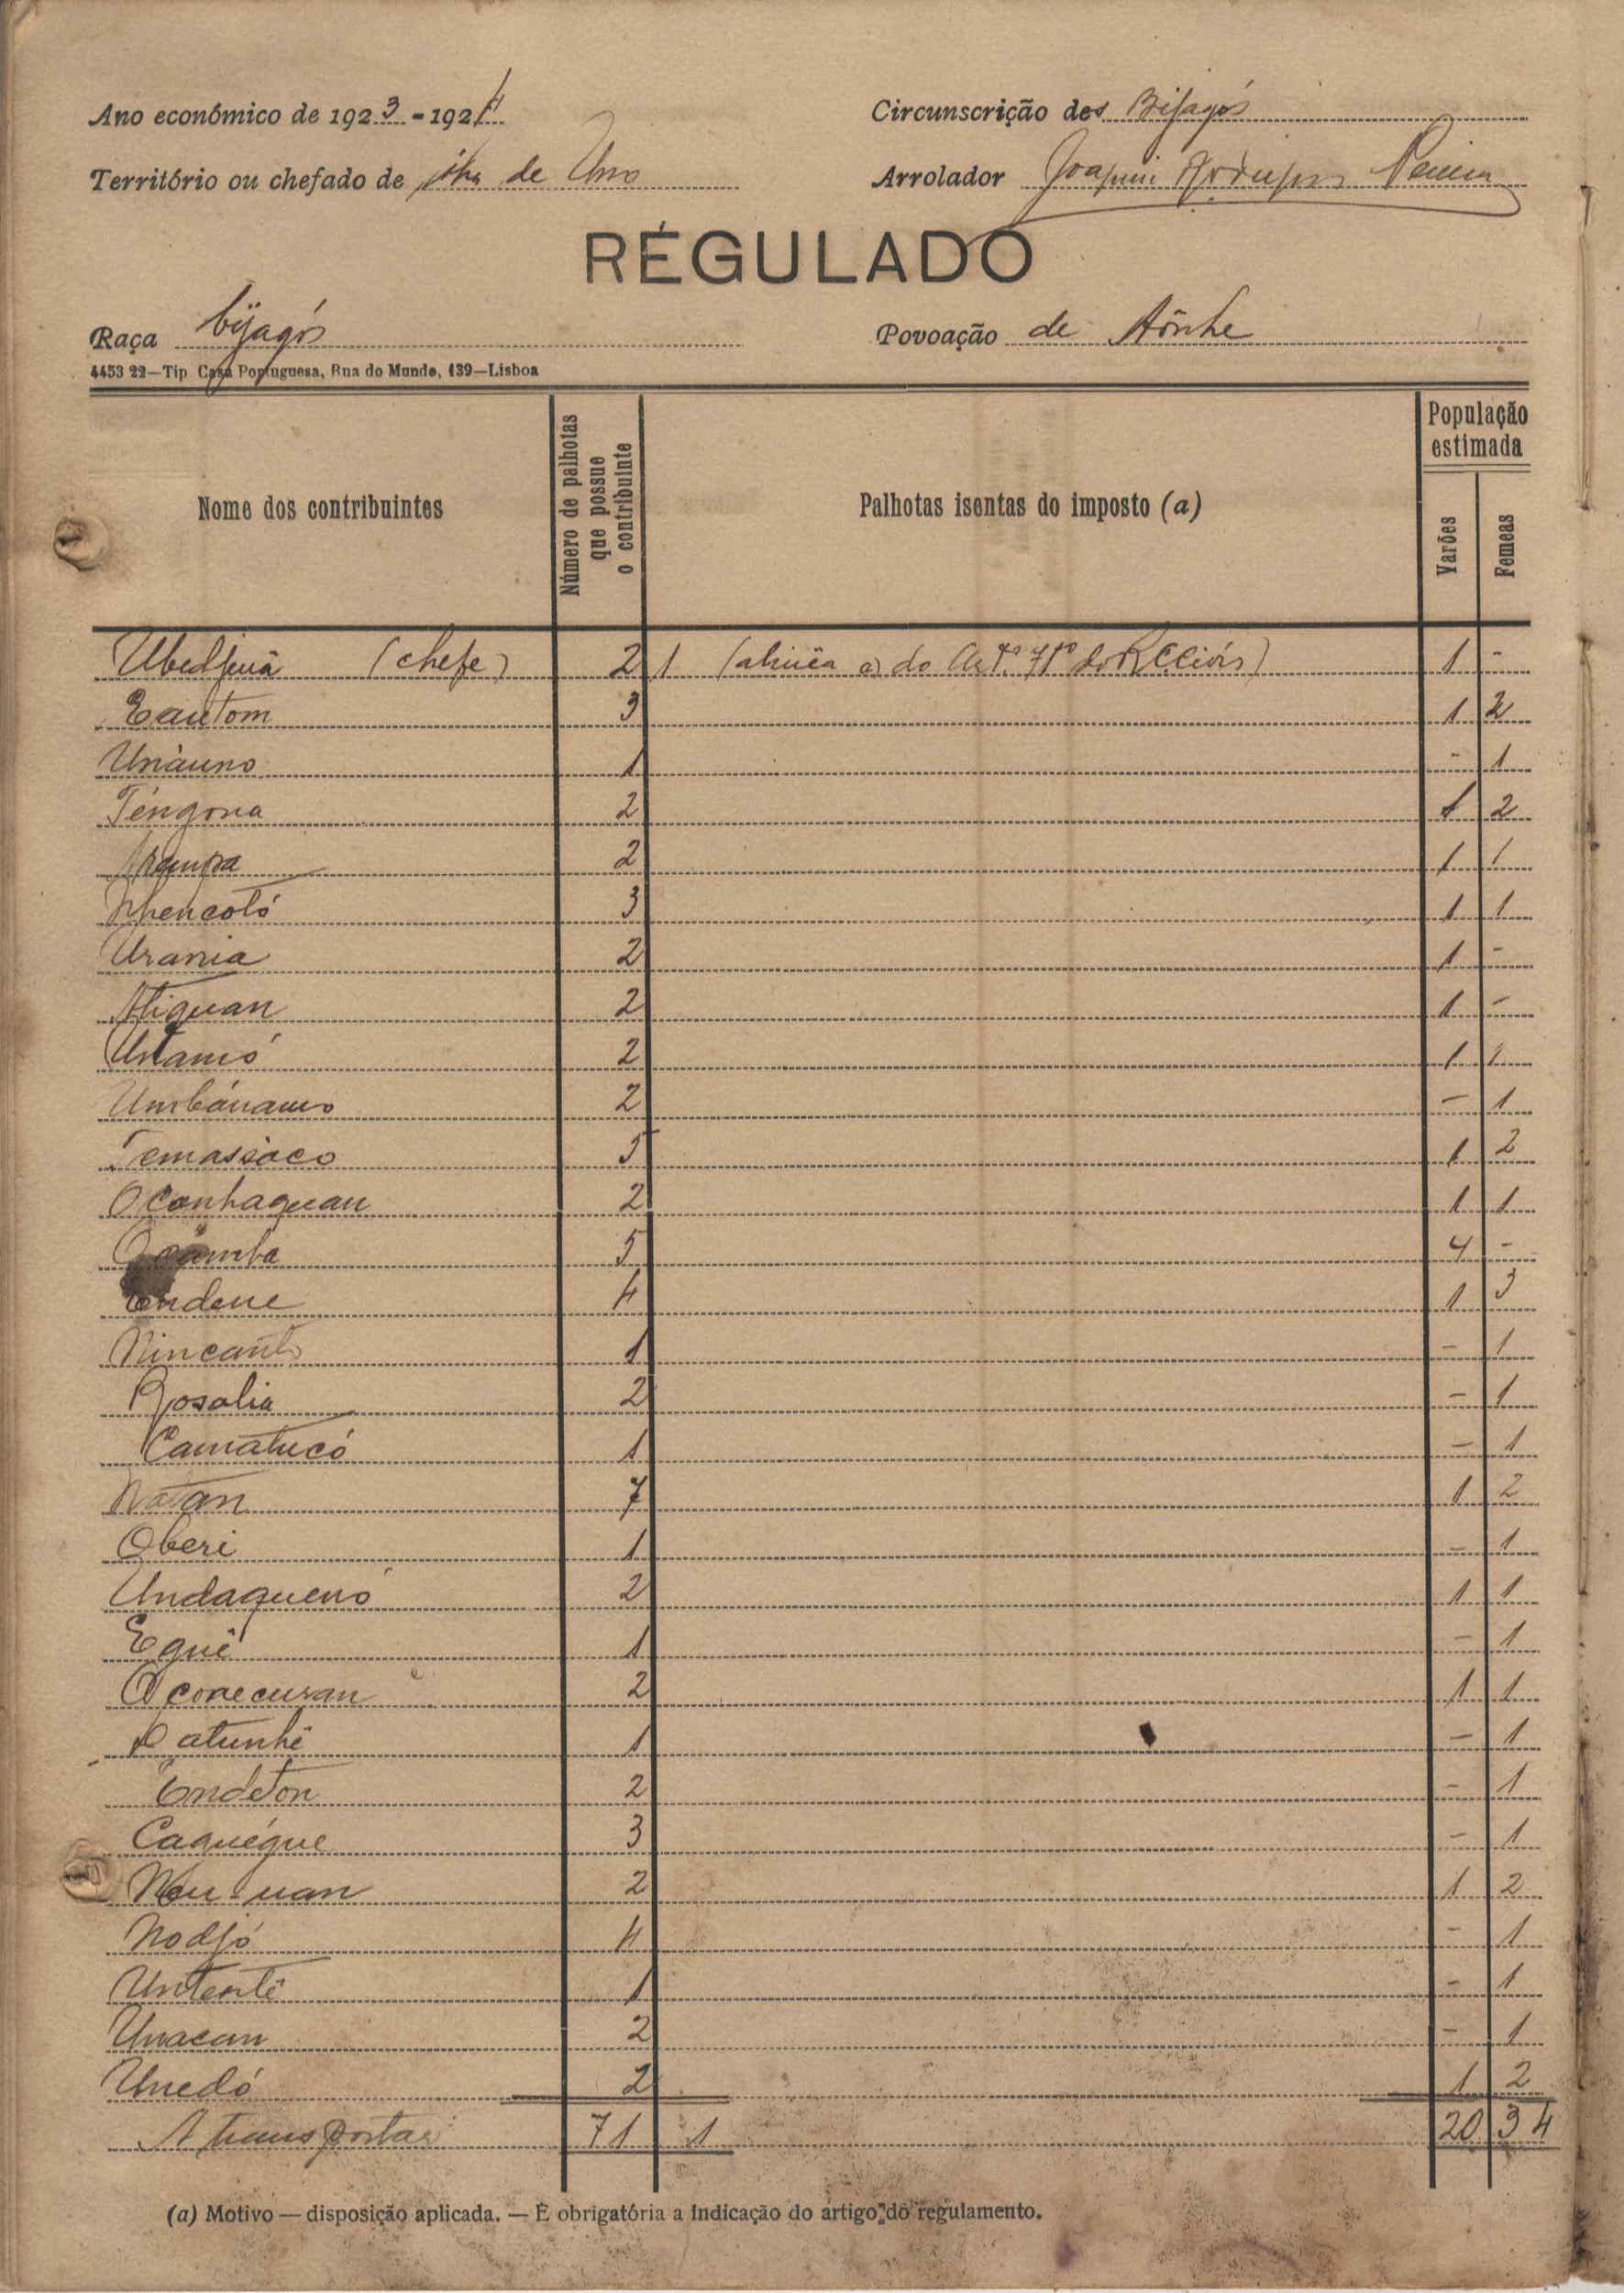 Ano económico de 1923-1924
Circunscrição dos Bijagós
Território ou chefado de ilha de Uno
Arrolador Joaquim Rodrigues Pereira
RÉGULADO
Raça bijagós
Povoação de Aônhe
4453 22—Tip Casa Portuguesa, Rua do Mundo, 139—Lisboa
Nome dos contribuintes
Número de palhotas que possue o contribuinte
Palhotas isentas do imposto (a)
População estimada
Varões
Femeas
(chefe) 2 1 (alinêa a) do Artº 71º do 1 -
Eautom 3 1 2
Unáuno 1 - 1
Têngona 2 1 2
2 1 1
3 1 1
Urania 2 1 -
Atiquan 2 1 -
2 1 1
Umbánamo 2 - 1
Temassáco 5 1 2
Oconhaquan 2 1 1
5 4 -
Endene 4 1 3
Nincanto 1 - 1
Rosalia 2 - 1
Camatucó 1 - 1
Natan 7 1 2
Oberi 1 - 1
Undaquenó 2 1 1
Equê 1 - 1
Oconecusan 2 1 1
Catunhê 1 - 1
Endeton 2 - 1
Caquéque 3 - 1
2 1 2
Nodjó 4 - 1
Untentê 1 - 1
Unacan 2 - 1
Unedó 2 1 2
A transportar 71 1 20 34
(a) Motivo — disposição aplicada. — É obrigatória a indicação do artigo do regulamento.